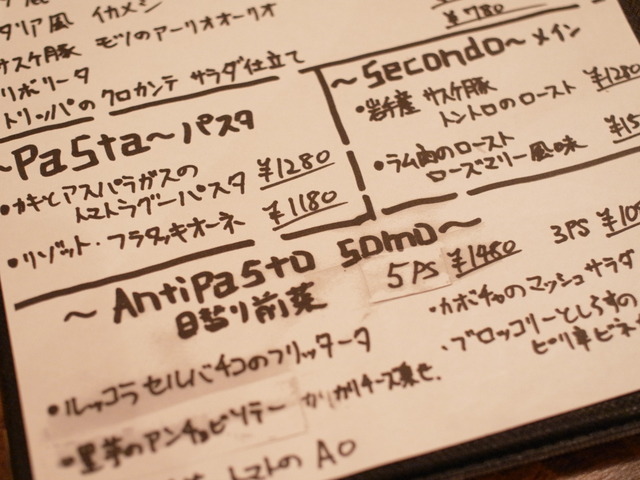 タリア風 イカメシ
サスケ豚 モツのアーリオオーリオ
リボリータ
トリッパの クロカンテ サラダ仕立て
¥780
~Secondo~ メイン
・岩手産 サスケ豚
トントロのロースト ¥1280
・ラム肉のロースト
ローズマリー風味
~Pasta~ パスタ
・カキとアスパラガスの
トマトラグーパスタ ¥1280
・リゾット・フラタッキオーネ ¥1180
~AntiPasto somo~
日替り前菜
5PS ¥1480
3PS
・ルッコラ セルバチコのフリッタータ
・里芋のアンチョビソテー カリカリチーズ乗せ.
トマトのAO
・カボチャのマッシュサラダ
・ブロッコリーとしらすの
ピリ辛ビネ